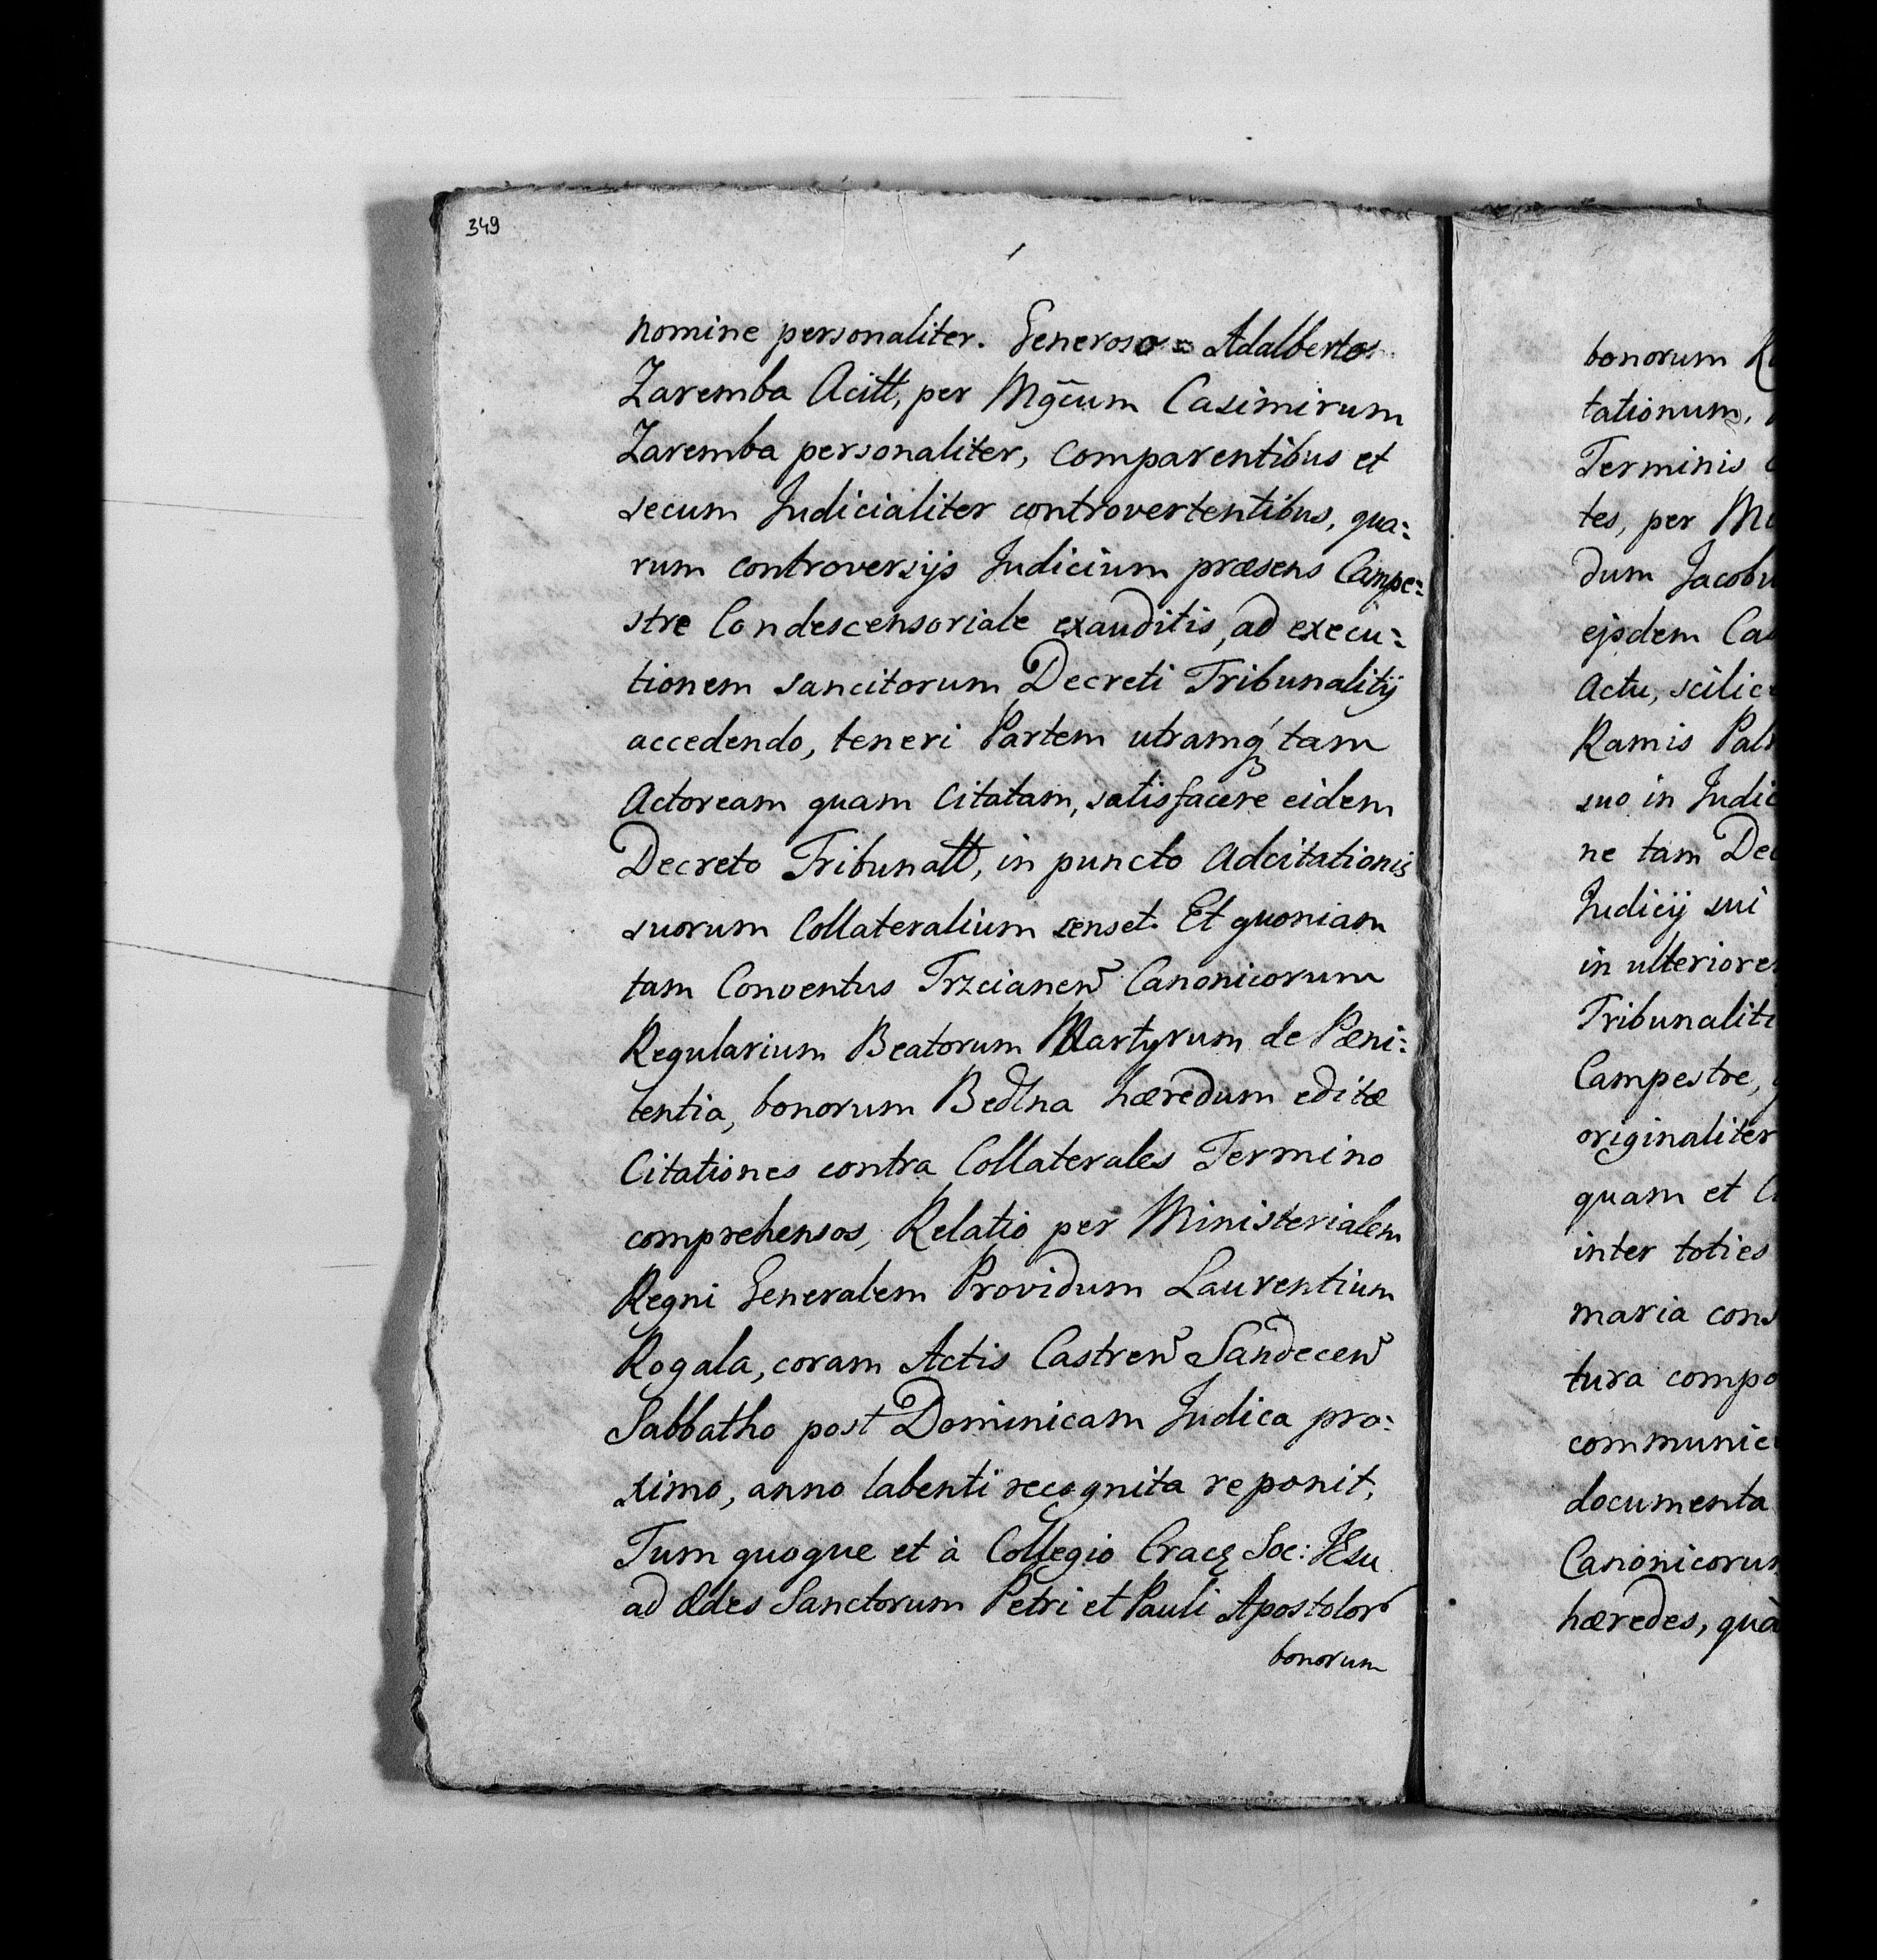 349
nomine personaliter. Generoso = Adalberto
Zaremba Acitt, per Mgcum Casimirum
Zaremba personaliter, comparentibus et
secum Judicialiter controvertentibus, qua:
rum controversijs Judicium præsens Campe:
stre Condescensoriale exauditis, ad execu:
tionem sancitorum Decreti Tribunalitij
accedendo, teneri Partem utramq́ tam
Actoream quam Citatam, satisfacere eidem
Decreto Tribunatt, in puncto Adcitationis
suorum Collateralium senset. Et quoniam
tam Conventus Trzcianen̄ Canonicorum
Regularium Beatorum Martyrum de Pæni:
tentia, bonorum Bedlna hæredum editæ
Citationes contra Collaterales Termino
comprehensos, Relatio per Ministerialem
Regni Generalem Providum Laurentium
Rogala, coram Actis Castren̄ Sandecen̄
Sabbatho post Dominicam Judica pro:
ximo, anno labenti recognita reponit,
Tum quoque et à Collegio Cracę Soc: JEsu
ad Ædes Sanctorum Petri et Pauli Apostolor
bonorum
bonorum
tationum,
Terminis
tes, per
dum
ejsdem
Actu,
Ramis
suo in
ne tam
Judicij sui
in
Campestre,
originaliter
quam et
inter toties
maria
tura
documenta
hæredes,